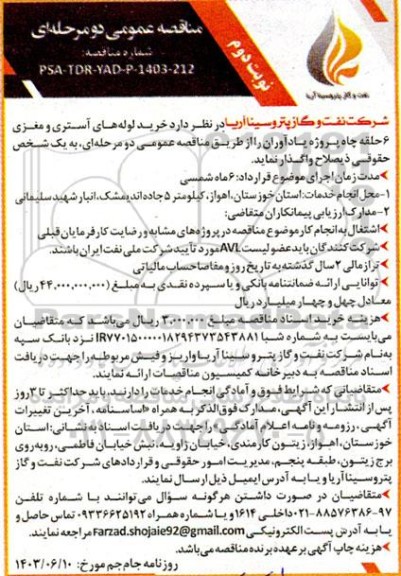 مناقصه عمومی دو مرحله‌ای
شماره مناقصه:
PSA-TDR-YAD-P-1403-212
نوبت دوم
نفت و گاز پتروسینا آریا
شرکت نفت و گاز پتروسینا آریا در نظر دارد خرید لوله‌های آستری و مغزی
۶ حلقه چاه پروژه یادآوران را از طریق مناقصه عمومی دو مرحله‌ای، به یک شخص
حقوقی ذیصلاح واگذار نماید.
مدت زمان اجرای موضوع قرارداد: ۶ ماه شمسی
۱- محل انجام خدمات: استان خوزستان، اهواز، کیلومتر ۵ جاده اندیمشک، انبار شهید سلیمانی
۲- مدارک ارزیابی پیمانکاران متقاضی:
اشتغال به انجام کار موضوع مناقصه در پروژه‌های مشابه و رضایت کارفرمایان قبلی
شرکت کنندگان باید عضو لیست AVL مورد تأیید شرکت ملی نفت ایران باشند.
ترازمالی ۲ سال گذشته به تاریخ روز و مفاصاحساب مالیاتی
توانایی ارائه ضمانتنامه بانکی و یا سپرده نقدی به مبلغ (۴۴،۰۰۰،۰۰۰،۰۰۰ ریال)
معادل چهل و چهار میلیارد ریال
هزینه خرید اسناد مناقصه مبلغ ۳،۰۰۰،۰۰۰ ریال می‌باشد که متقاضیان
می‌بایست به شماره شبا نزد بانک سپه
به‌نام شرکت نفت و گاز پتروسینا آریا واریز و فیش مربوطه را جهت دریافت
اسناد مناقصه به دبیرخانه کمیسیون مناقصات ارائه نمایند.
متقاضیانی که شرایط فوق و آمادگی انجام خدمات را دارند، باید حداکثر تا ۳ روز
پس از انتشار این آگهی، مدارک فوق‌الذکر به همراه «اساسنامه، آخرین تغییرات
آگهی، رزومه و نامه اعلام آمادگی» را جهت دریافت اسناد به نشانی: استان
خوزستان، اهواز، زیتون کارمندی، خیابان زاویه، نبش خیابان فاطمی، روبه‌روی
برج زیتون، طبقه پنجم، مدیریت امور حقوقی و قراردادهای شرکت نفت و گاز
پتروسینا آریا و یا به آدرس ایمیل ذیل ارسال نمایند.
متقاضیان در صورت داشتن هرگونه سؤال می‌توانند با شماره تلفن
۰۲۱-۸۸۵۷۶۳۸۶-۹۷ داخلی ۱۶۱۴ و یا شماره همراه ۰۹۳۳۶۶۲۵۱۹۲ تماس حاصل و
یا به آدرس پست الکترونیکی Farzad.shojaie92@gmail.com مراجعه نمایند.
هزینه چاپ آگهی بر عهده برنده مناقصه می‌باشد.
روزنامه جام جم مورخ: ۱۴۰۳/۰۶/۱۰